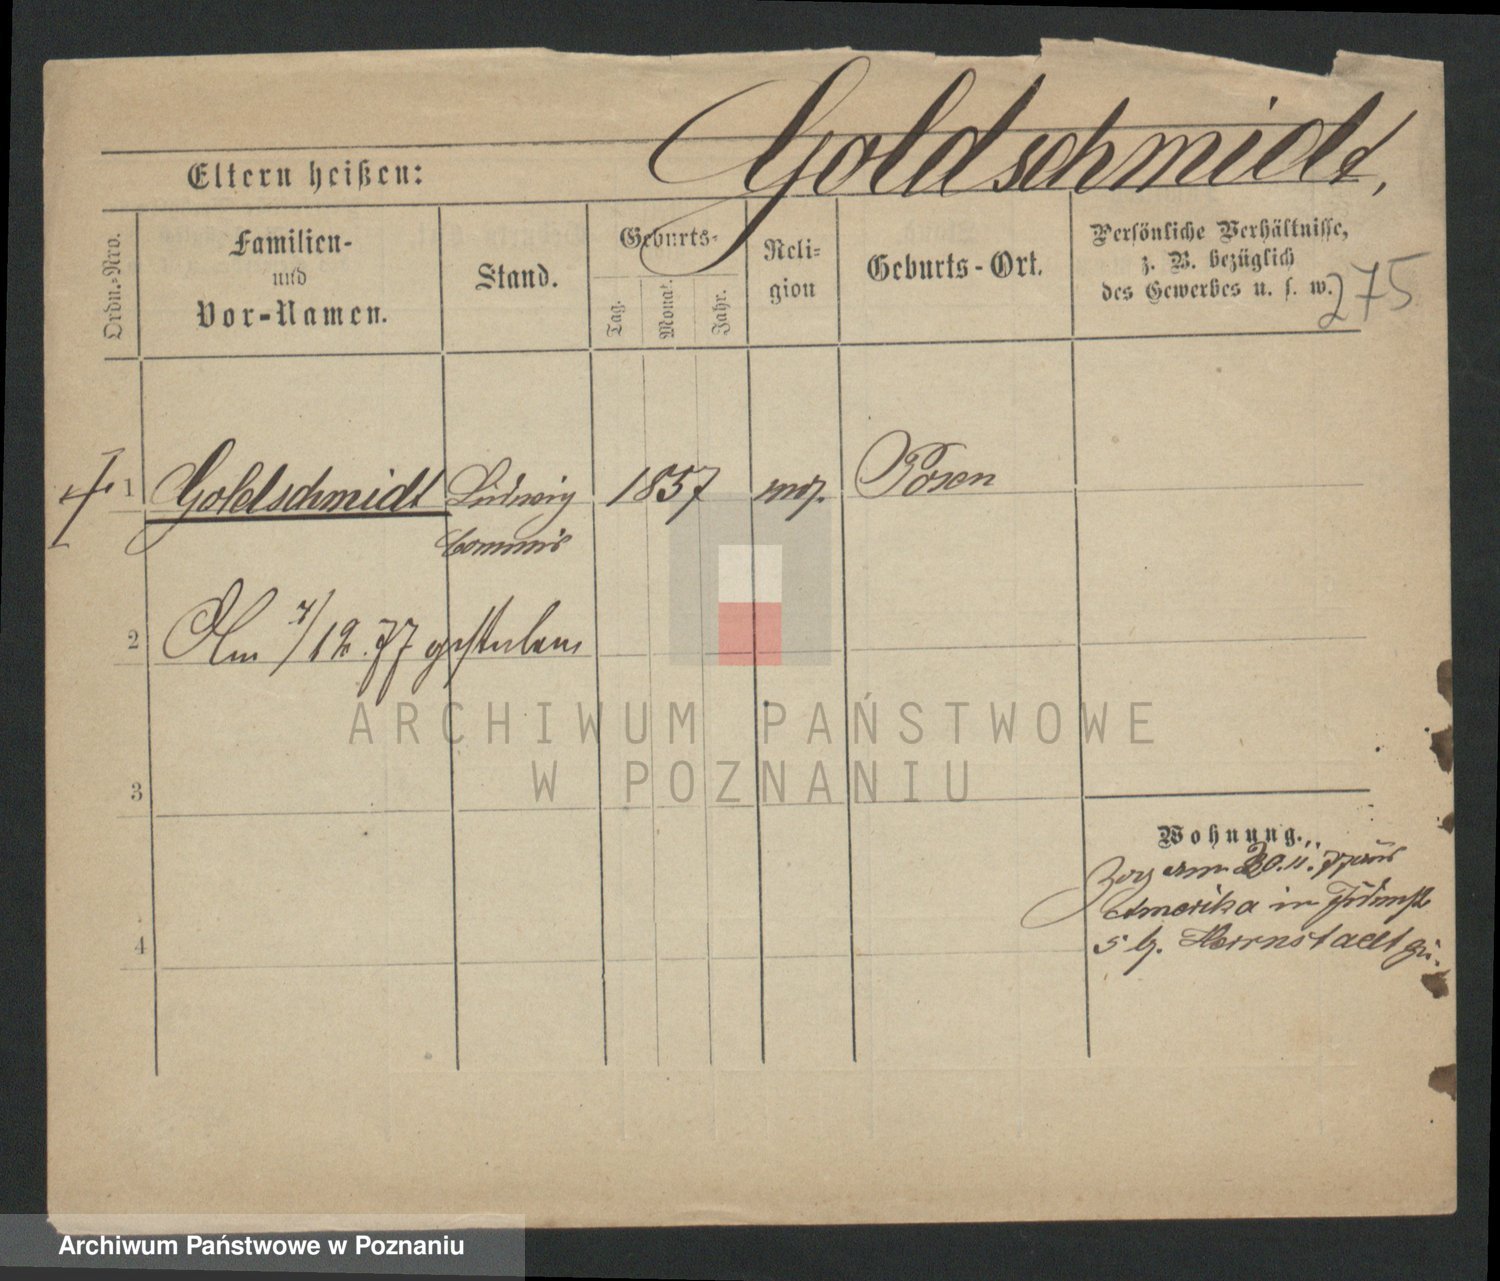 Goldschmidt,
Eltern heißen:
Ordn.-Nro.
Familien-
und
Vor-Namen.
Stand.
Geburts-
Tag.
Monat.
Jahr.
Reli-
gion
Geburts-Ort.
Persönliche Verhältnisse,
z. B. bezüglich
des Gewerbes u. s. w.
275
1 Goldschmidt Ludwig 1857 mos. Posen
Commis
2 Am 4/12. 77 gestorben
3
Wohnung.
Zog am 20.11.77 aus
Amerika in
5 b. Herrnstadt zu.
4
ARCHIWUM PAŃSTWOWE
W POZNANIU
Archiwum Państwowe w Poznaniu